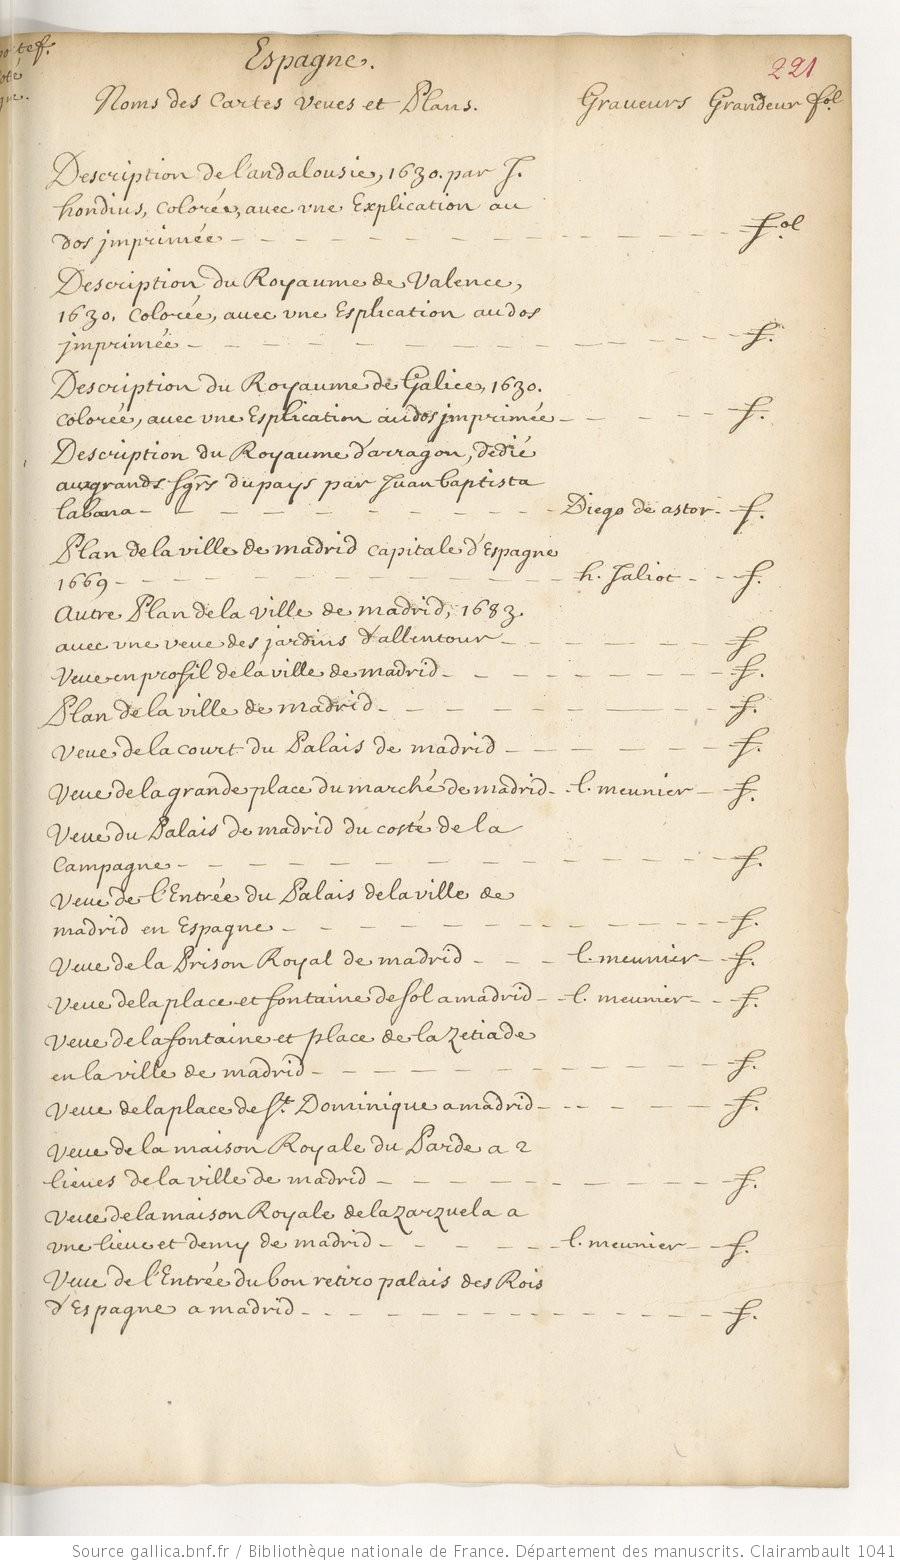 Espagne.
221
Noms des Cartes Veues et Plans. Graveurs Grandeur fol
Description de l'andalousie, 1630. par J.
hondius, Colorée, avec vne Explication au
dos jmprimée - - - - - fol
Description du Royaume de Valence,
1630. Colorée, avec vne Esplication au dos
jmprimée - - - - - f.
Description du Royaume de Galice, 1630.
colorée, avec vne Esplication au dos jmprimée - - - f.
Description du Royaume d'arragon, dedié
aux grands sgrs du pays par Juan baptista
labana - - - - - Diego de astor - f.
Plan de la ville de madrid capitale d'Espagne
1669 - - - - - h. Jaliot - - f.
Autre Plan de la ville de madrid, 1683.
avec vne veue des jardins d'allentour - - - - f
Veue en profil de la ville de madrid - - - - f.
Plan de la ville de madrid - - - - - f.
Veue de la court du Palais de madrid - - - - f.
Veue de la grande place du marché de madrid - - l. meunier - f.
Veue du Palais de madrid du costé de la
Campagne - - - - - f.
Veue de l'Entrée du Palais de la ville de
madrid en Espagne - - - - - f.
Veue de la Prison Royal de madrid - - - l. meunier - f.
Veue de la place et fontaine de sol a madrid - - l. meunier - - f.
Veue de la fontaine et place de la Zetiade
en la ville de madrid - - - - - f.
Veue de la place de St. Dominique a madrid - - - - f.
Veue de la maison Royale du Parde a 2
lieues de la ville de madrid - - - - - f.
Veue de la maison Royale de la Zarzuela a
vne lieue et demy de madrid - - - - l. meunier - - f.
Veue de l'Entrée du bon retiro palais des Rois
d'Espagne a madrid - - - - - f.
Source gallica.bnf.fr / Bibliothèque nationale de France. Département des manuscrits. Clairambault 1041